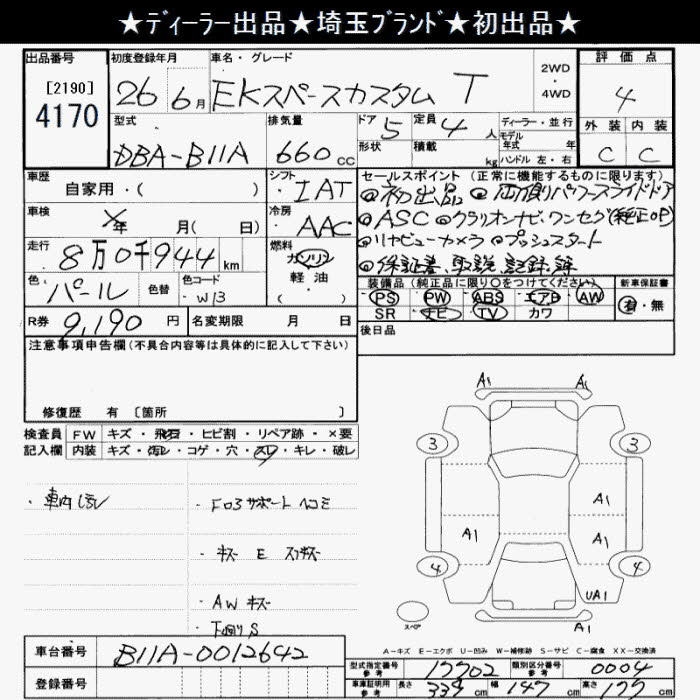 ★ディーラー出品★埼玉ブランド★初出品★
出品番号
[2190]
4170
初度登録年月
26年6月
車名・グレード
EKスペースカスタム T
2WD
・
4WD
評価点
4
外装 内装
C C
型式
DBA-B11A
排気量
660cc
ドア 5
形状
定員 4人
積載 kg
ディーラー・並行
モデル
年式 年
ハンドル 左・右
車歴
自家用・( )
シフト
IAT
車検
年 月( 日)
冷房
AAC
走行
8万0千944km
燃料
ガソリン
軽油
( )
色
パール
色替
色コード
W13
R券 9,190円
名変期限 月 日
セールスポイント(正常に機能するものに限ります)
◎初出品 ◎両側パワースライドドア
◎ASC ◎クラリオンナビ、ワンセグ(純正OP)
◎リヤビューカメラ ◎プッシュスタート
◎保証書、取説、記録簿
装備品(純正品に限り○をつけてください)
PS PW ABS エアB AW
SR ナビ TV カワ
新車保証書
有・無
後日品
注意事項申告欄(不具合内容等は具体的に記入して下さい)
修復歴 有 〔箇所 〕
検査員
記入欄
FW キズ・飛石・ヒビ割・リペア跡・×要
内装 キズ・汚レ・コゲ・穴・スレ・キレ・破レ
・車内
・F03サポート ヘコミ
・キズ E スリキズ
・AW キズ
・下回りS
A1 A1
3 3
A1
A1 A1
4 4
UA1
A1
スペア
A-キズ E-エクボ U-凹み W-補修跡 S-サビ C-腐食 XX-交換済
車台番号
B11A-0012642
登録番号
型式指定番号
参考
17702
類別区分番号
参考
0004
車庫証明用
参考
長さ 339cm 幅 147cm 高さ 177cm